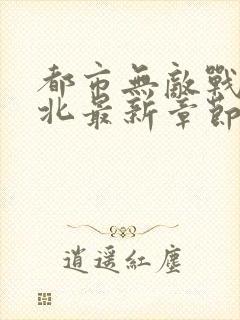 都市無敵戰
北最新章節
逍遥紅塵